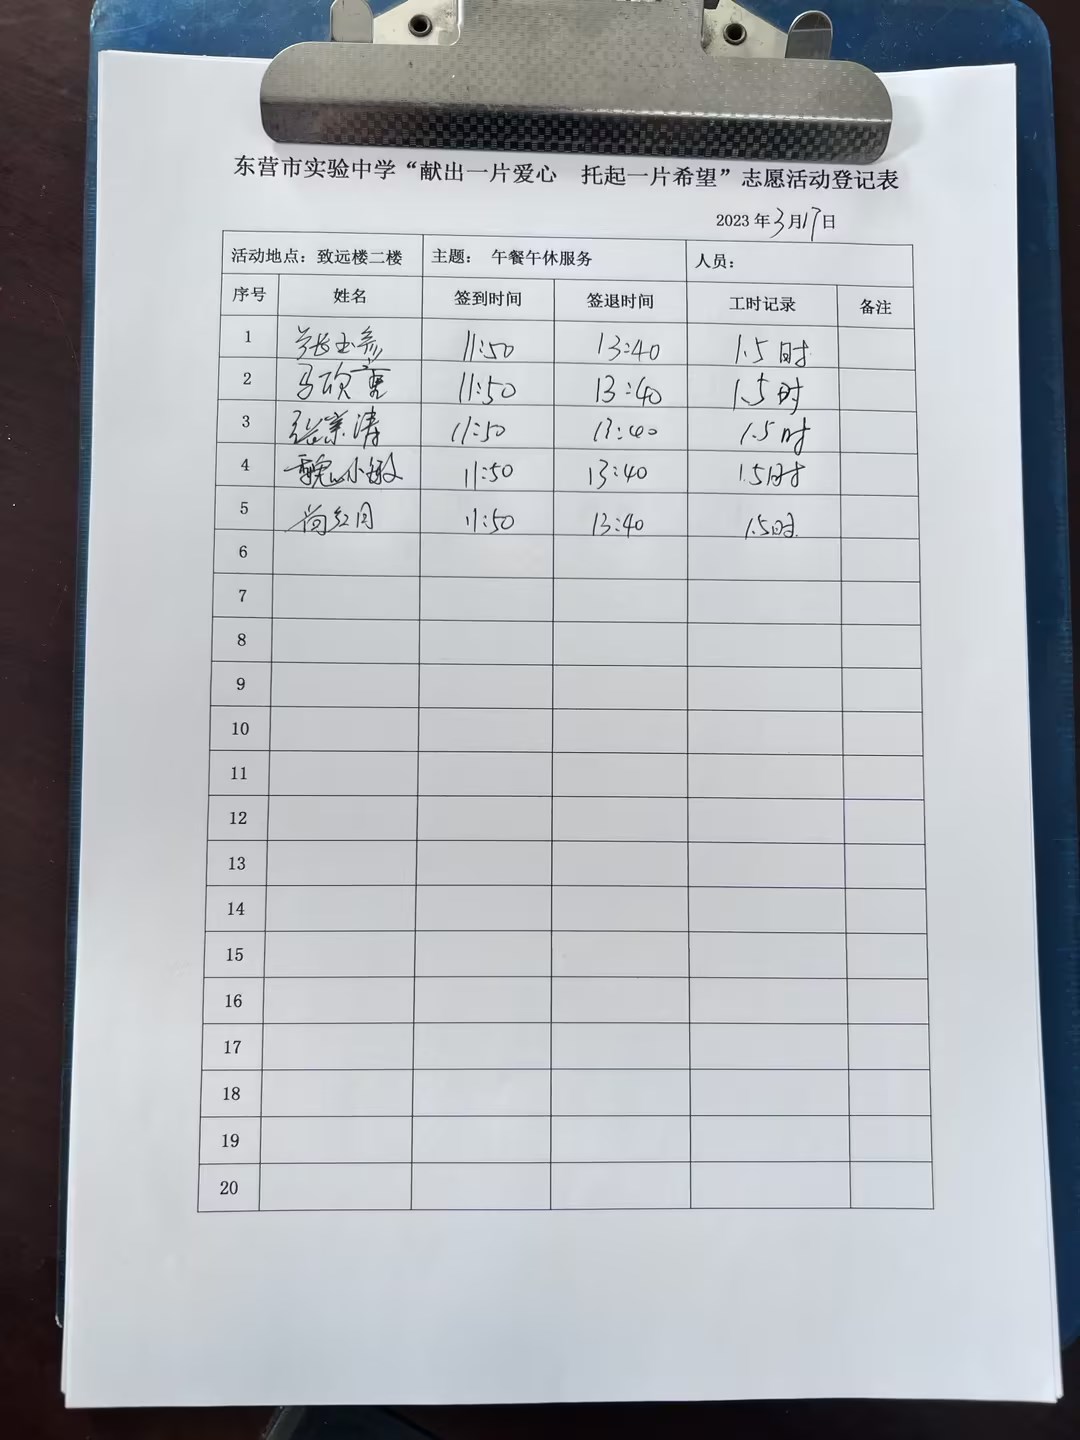 东营市实验中学“献出一片爱心 托起一片希望”志愿活动登记表
2023年3月17日
活动地点：致远楼二楼 主题： 午餐午休服务 人员：
序号 姓名 签到时间 签退时间 工时记录 备注
1 张玉 11:50 13:40 1.5时
2 马 11:50 13:40 1.5时
3 张 涛 11:50 13:40 1.5时
4 魏小敏 11:50 13:40 1.5时
5 尚红月 11:50 13:40 1.5时
6
7
8
9
10
11
12
13
14
15
16
17
18
19
20